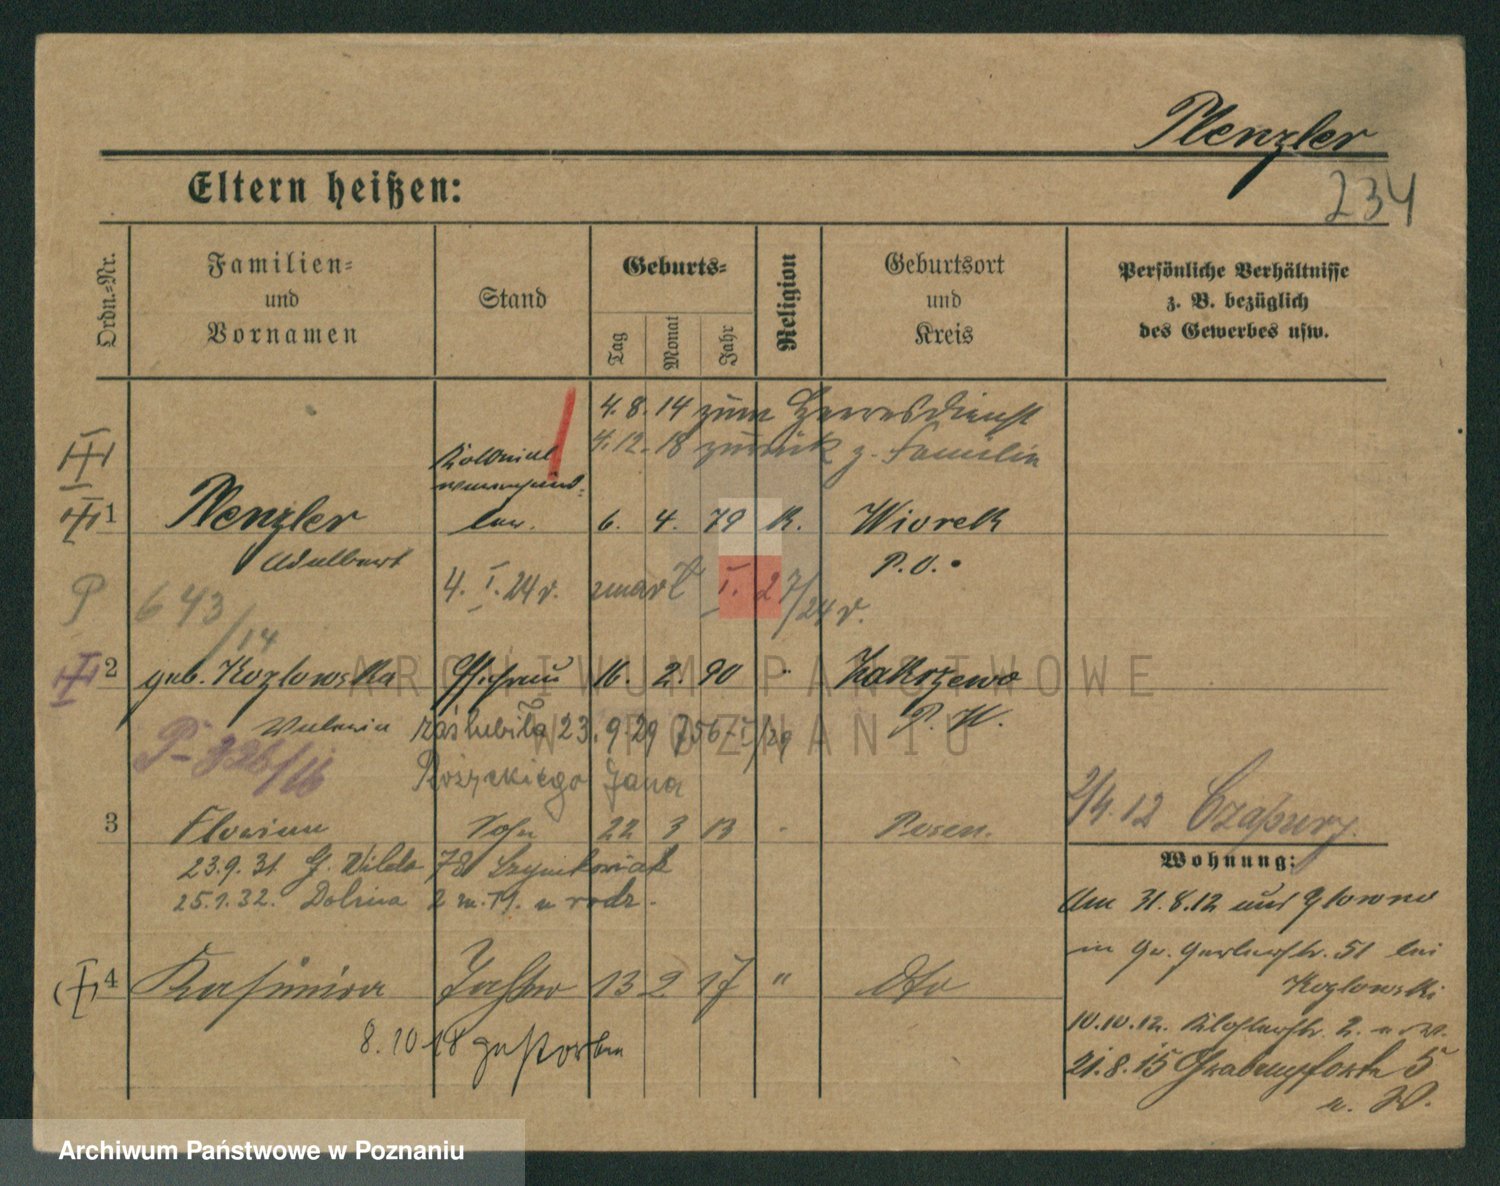 Menzler
234
Eltern heißen:
Ordn.-Nr.
Familien-
und
Vornamen
Stand
Geburts-
Tag
Monat
Jahr
Religion
Geburtsort
und
Kreis
Persönliche Verhältnisse
z. B. bezüglich
des Gewerbes usw.
4. 8. 14 zum Heeresdienst
4. 12. 18 zurück z. Familie
Kolonial
1 Menzler 6. 4. 79 K. Wiorek
Adalbert P. O.
4. I. 24 r. zmarł I. 27/24 r.
P 643/14
2 geb. Kozlowska Ehefrau 16. 2. 90 " Zakrzewo
Valeria zaślubiła 23. 9. 29 756-I/29 P. W.
P-326/16
Rożyckiego Jana
2/4. 12 Czapury
3 Florian Sohn 22 3 13 " Posen.
23. 9. 31. G. Wilda 78 Szymkowiak
25. 1. 32. Dolina 2 m. 11. u rodz.
Wohnung:
Am 31. 8. 12 aus Glowno
in Gr. Gerberstr. 51 bei
Kozlowski
10. 10. 12. Klosterstr. 2.
21. 8. 15 Grabenpforte 5
n. W.
4 Kasimira Tochter 13 2 17 " Dto
8. 10 18 gestorben
ARCHIWUM PAŃSTWOWE
W POZNANIU
Archiwum Państwowe w Poznaniu